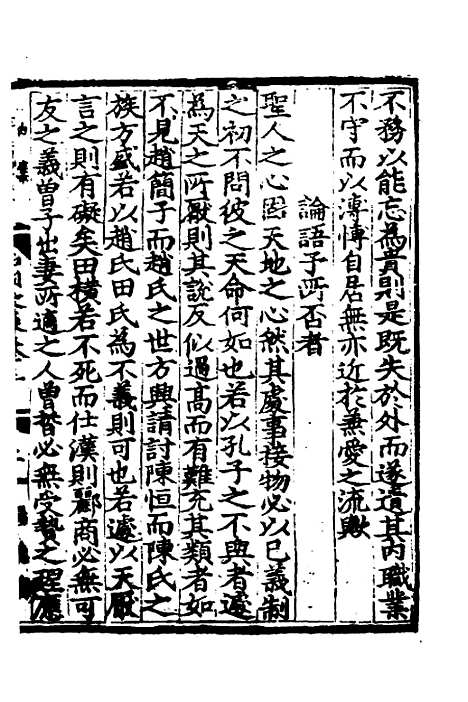 不務以能忘為貴則是既失於外而遂遺其內職業
不守而以溥愽自居無亦近於兼愛之流歟
論語子所否者
聖人之心固天地之心然其處事接物必以已義制
之初不問彼之天命何如也若以孔子之不與者遽
為天之所厭則其說反似過高而有難充其類者如
不見趙簡子而趙氏之世方興請討陳恒而陳氏之
族方盛若以趙氏田氏為不義則可也若遽以天厭
言之則有礙矣田橫若不死而仕漢則酈商必無可
友之義曽子出妻所適之人曽晳必無受贄之理應